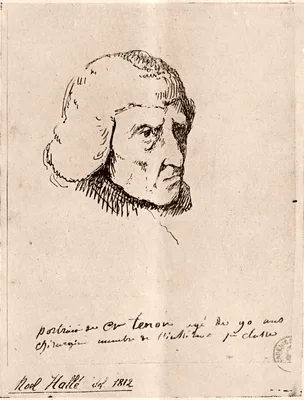 portrait de Mr tenon agé de 90 ans
chirurgien membre de l'institut 1re classe
Noel Hallé del 1812